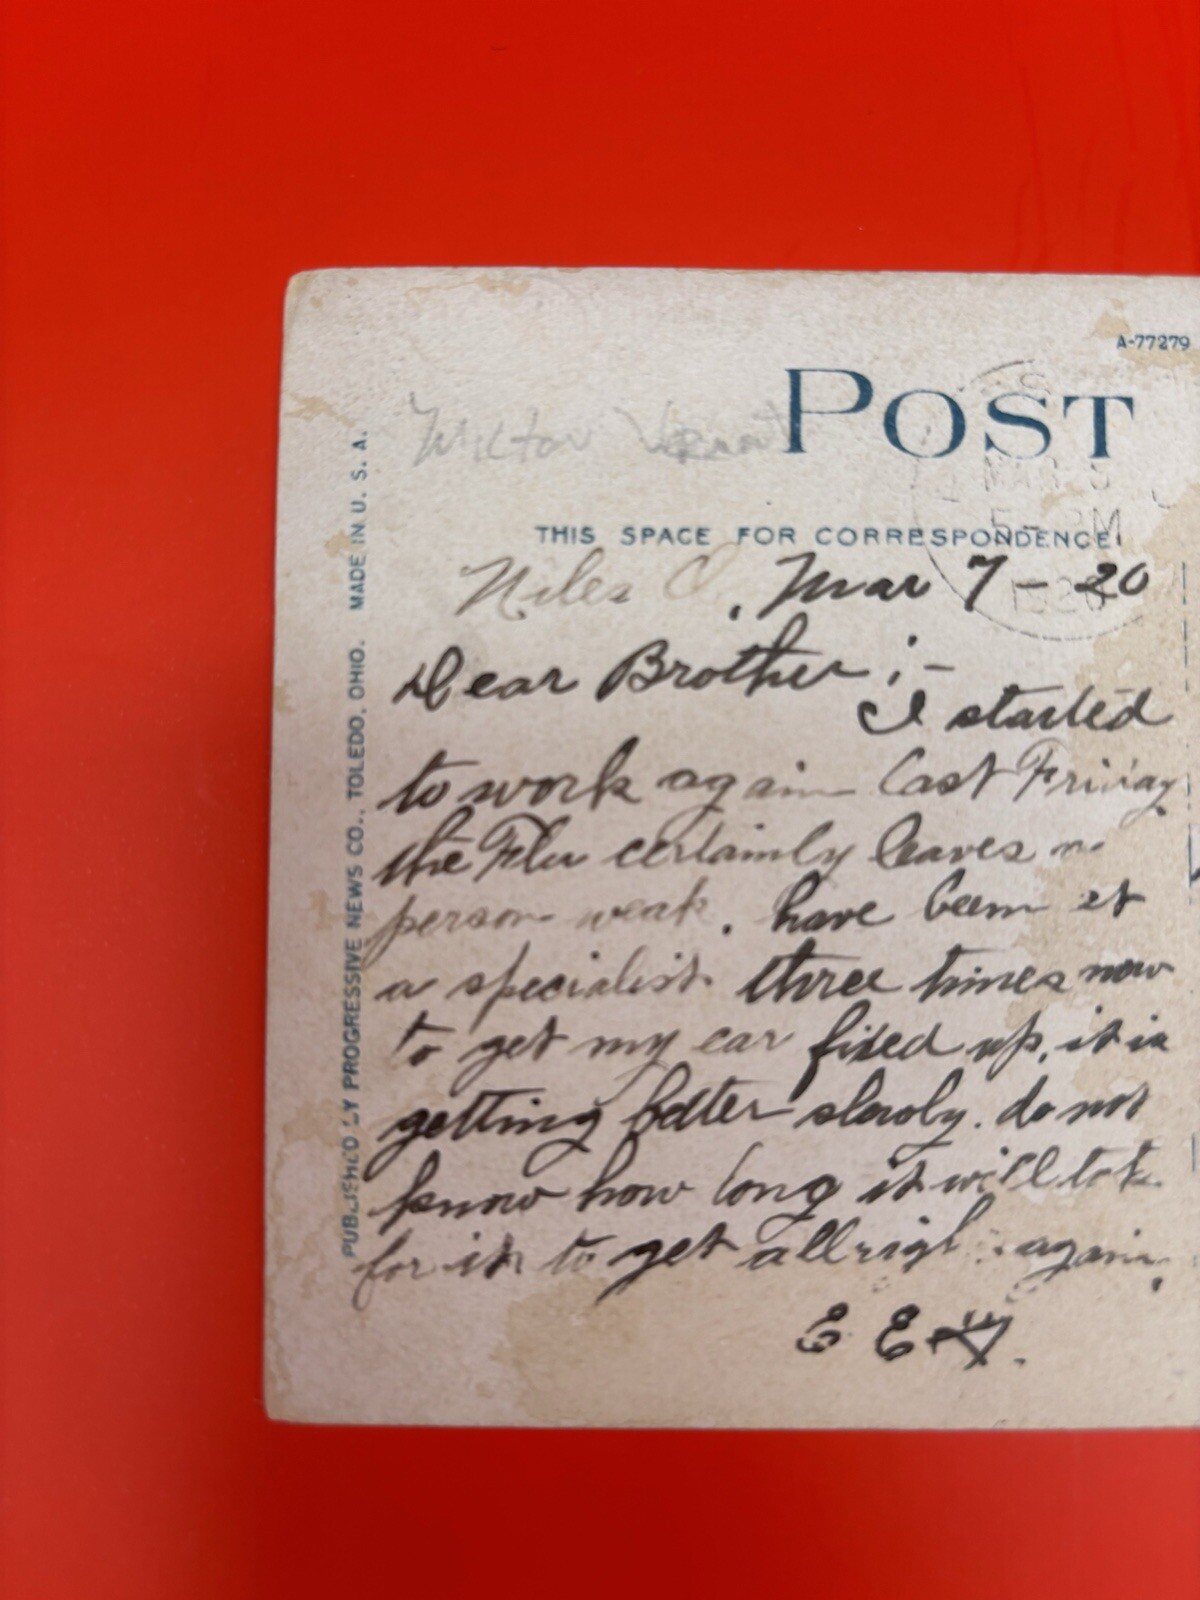 A-77279
POST
THIS SPACE FOR CORRESPONDENCE
Niles O, Mar 7-20
Dear Brother;-
I started
to work again last Friday
the Flu certainly leaves a
person weak. have been et
a specialist three times now
to get my ear fixed up, it is
getting better slowly. do not
know how long it will take
for it to get allright again.
E E
PUBLISHED BY PROGRESSIVE NEWS CO., TOLEDO, OHIO. MADE IN U. S. A.